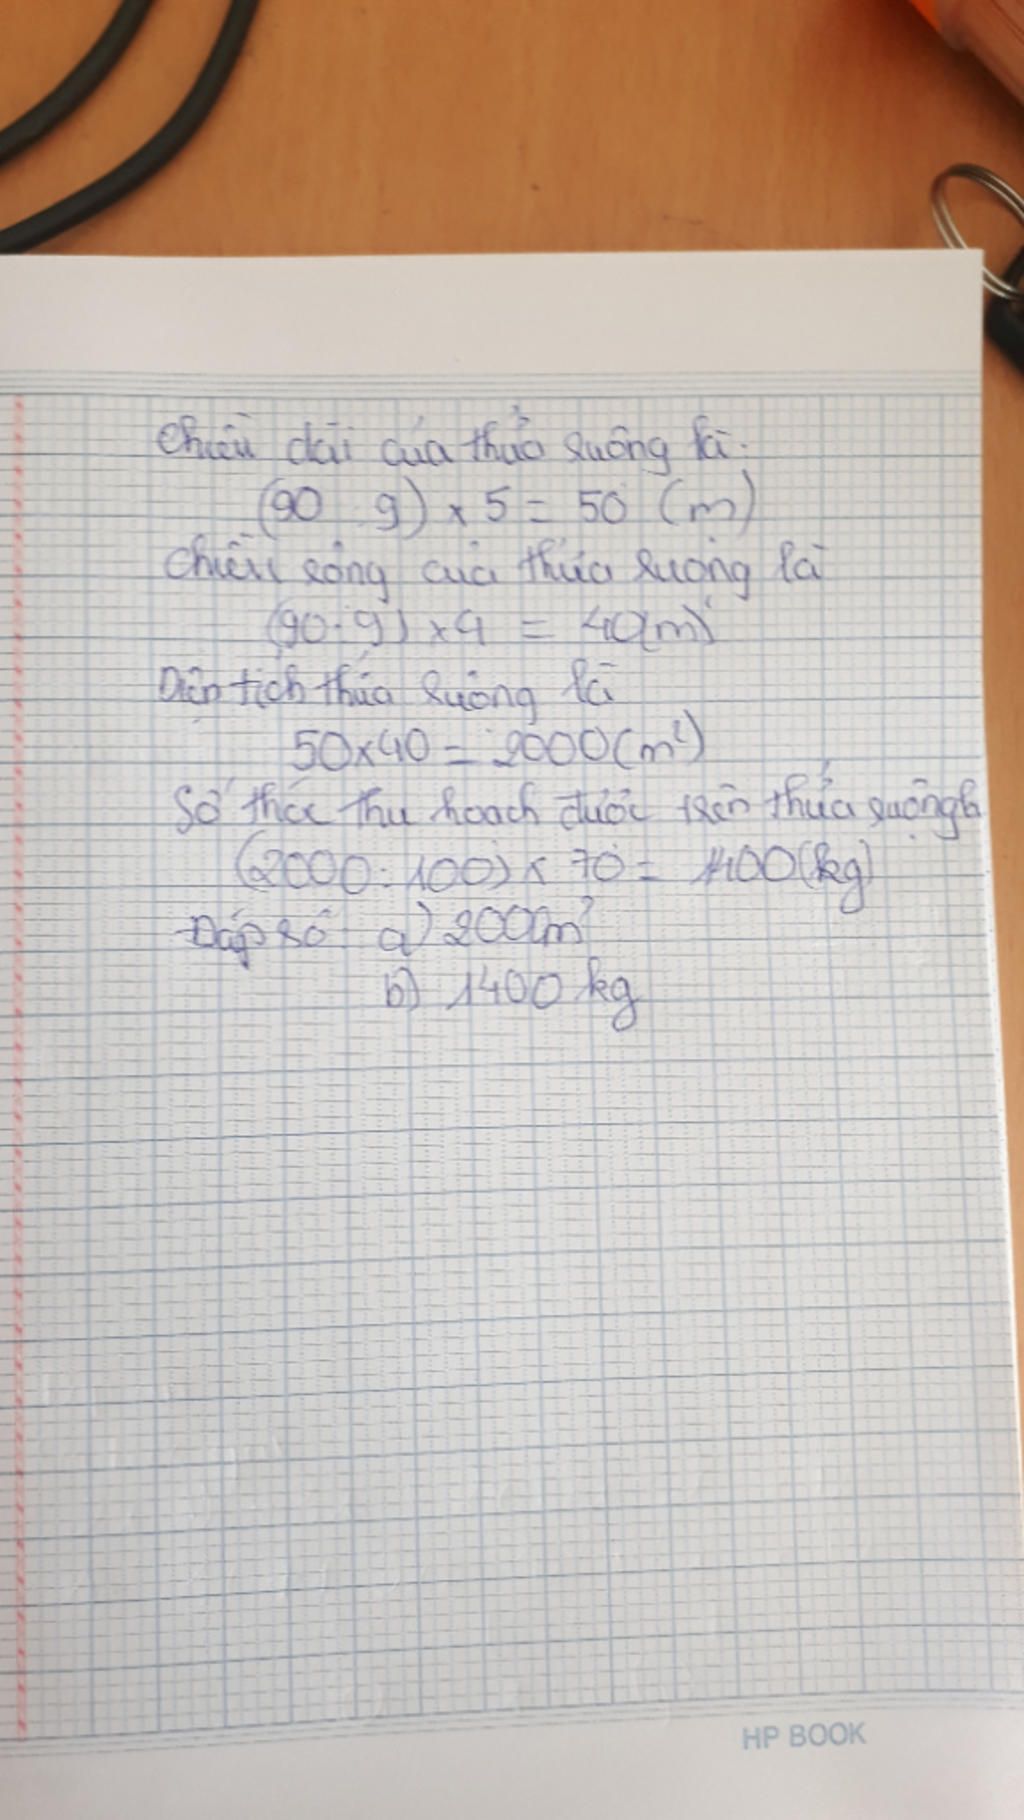 Chiều dài của thửa ruộng là:
(90 : 9) x 5 = 50 (m)
Chiều rộng của thửa ruộng là
(90 : 9) x 4 = 40(m)
Diện tích thửa ruộng là
50 x 40 = 2000 (m²)
Số thóc thu hoạch được trên thửa ruộng là
(2000 : 100) x 70 = 1400 (kg)
Đáp số a) 2000m²
b) 1400 kg
HP BOOK